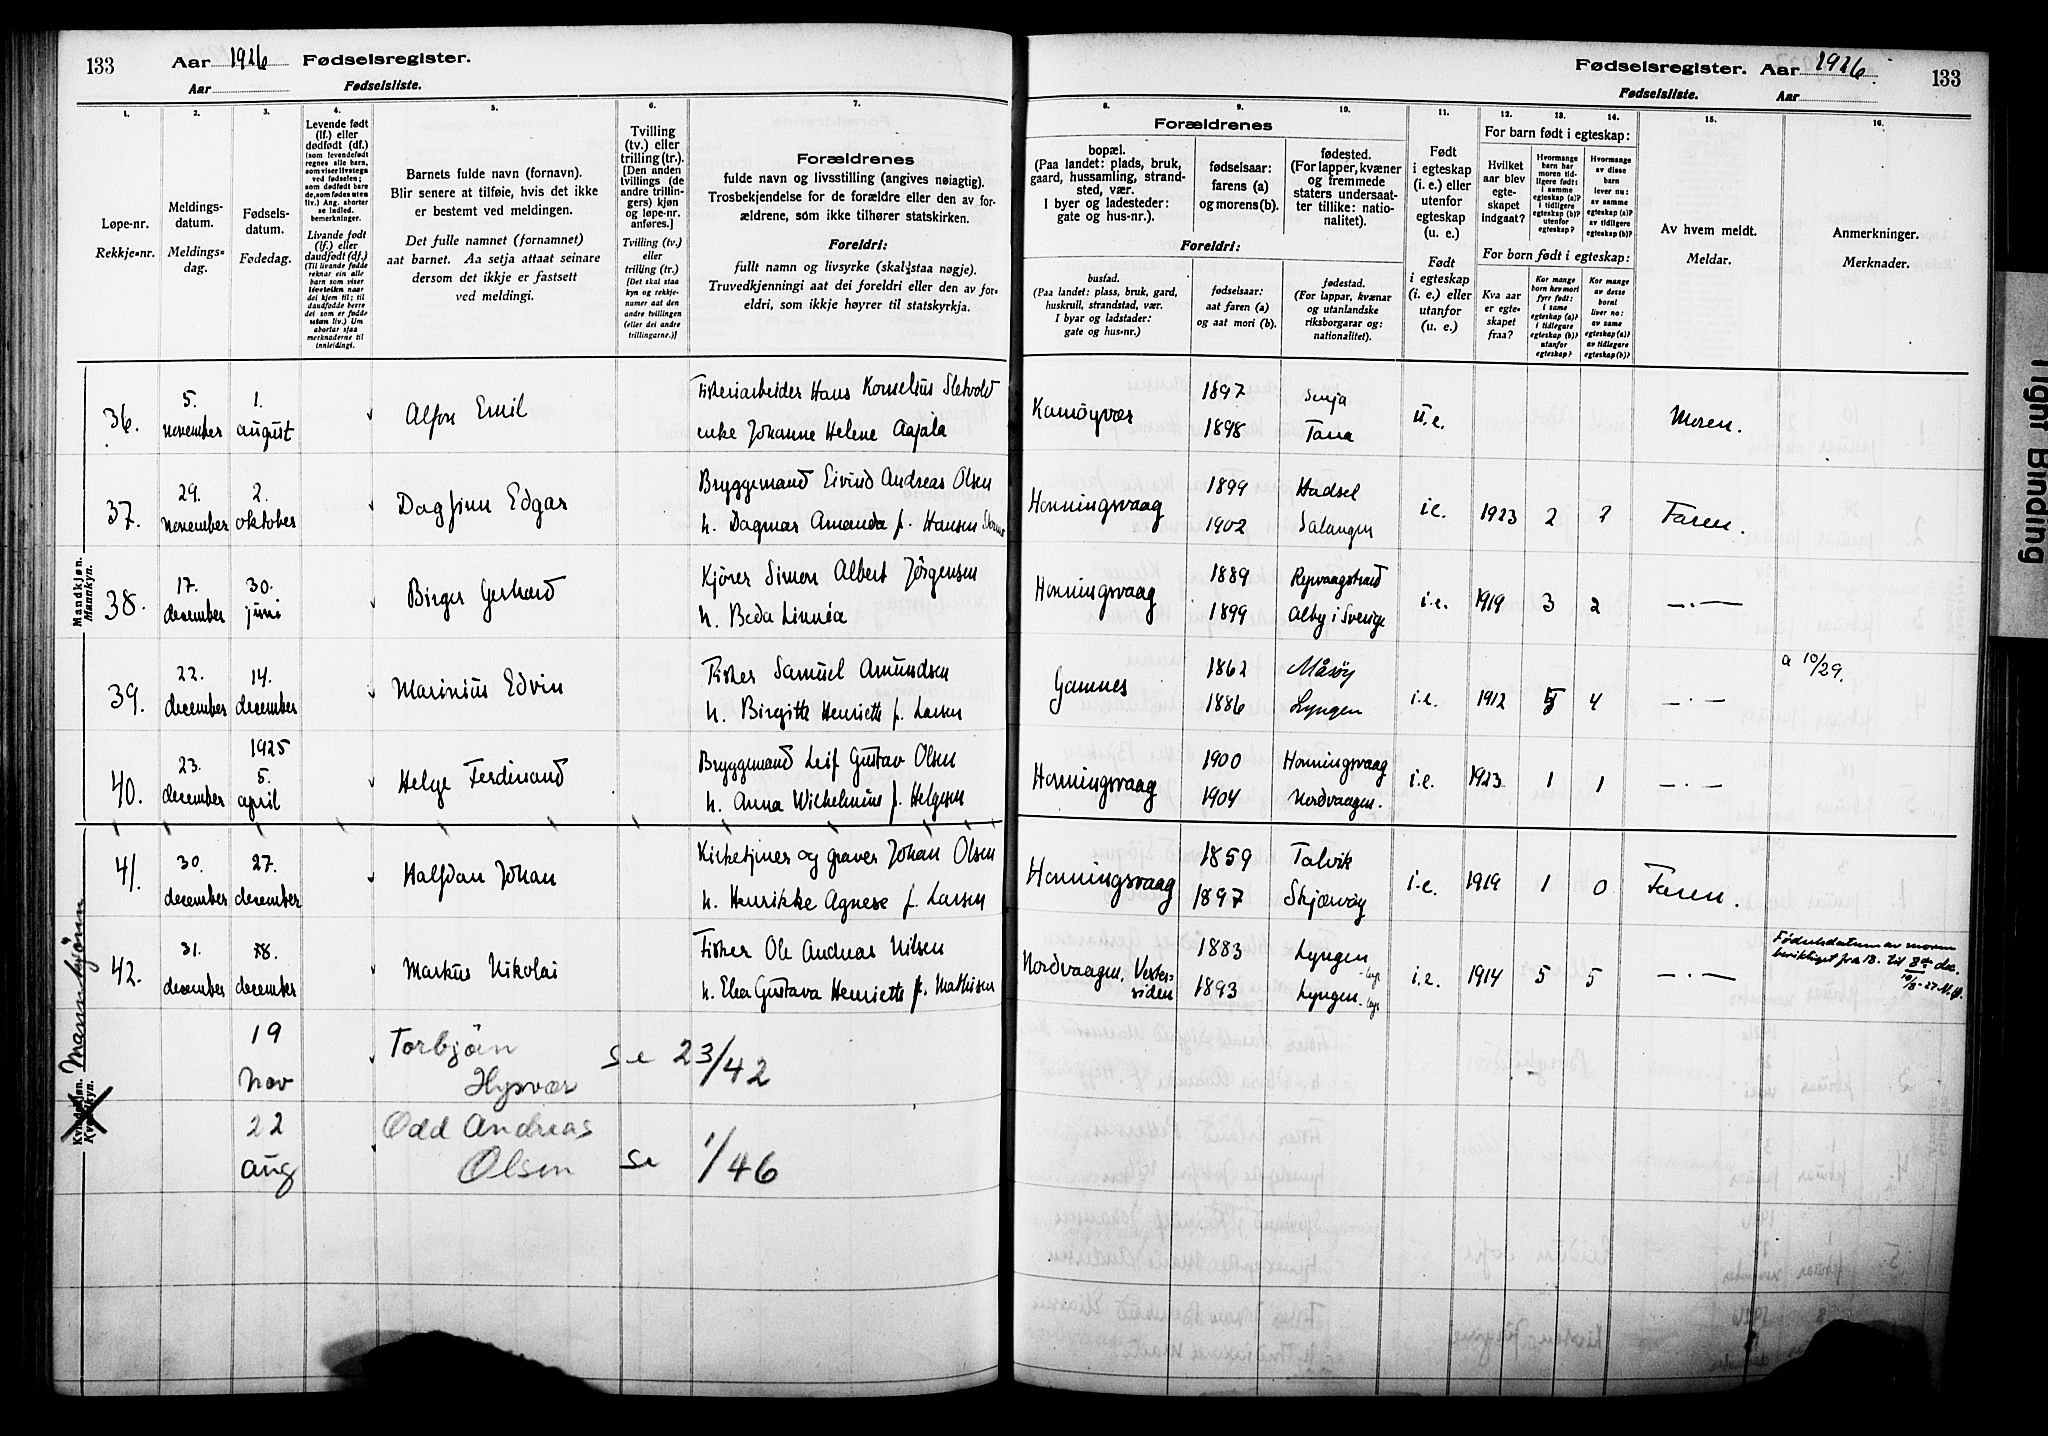 133 Aar 1926 Fødselsregister.
Aar Fødselsliste.
Fødselsregister. Aar 1926. 133
Fødselsliste. Aar
1. 2. 3. 4. 5. 6. 7.
Løpe-nr.
Rekkje-nr.
Meldings-
datum.
Meldings-
dag.
Fødsels-
datum.
Fødedag.
Levende født
(lf.) eller
dødfødt (df.)
(som levendefødt
regnes alle barn,
som viser livstegn
ved fødselen;
som dødfødt bare
de, som fødes uten
liv.) Ang. aborter
se indled.
bemerkninger.
Livande født
(lf.) eller
daudfødt (df.)
(Til livande fødde
reknar ein alle
barn som viser
livsteikn naar
dei kjem til; til
daudfødde berre
dei som er fødde
utan liv.) Um
abortar sjaa
merknaderne til
innleidingi.
Barnets fulde navn (fornavn).
Blir senere at tilføie, hvis det ikke
er bestemt ved meldingen.
Det fulle namnet (fornamnet)
aat barnet. Aa setja attaat seinare
dersom det ikkje er fastsett
ved meldingi.
Tvilling
(tv.) eller
trilling (tr.).
[Den anden
tvillings (de
andre trillin-
gers) kjøn
og løpe-nr.
anføres.]
Tvilling (tv.)
eller
trilling (tr.)
[Det skal staa
kyn og rekkje-
numer aat den
andre tvillingen
(eller dei andre
trillingarne.)]
Forældrenes
fulde navn og livsstilling (angives nøiagtig).
Trosbekjendelse for de forældre eller den av for-
ældrene, som ikke tilhører statskirken.
Foreldri:
fullt namn og livsyrke (skal staa nøgje).
Truvedkjenningi aat dei foreldri eller den av for-
eldri, som ikkje høyrer til statskyrkja.
8. 9. 10. 11. 12. 13. 14. 15. 16.
Forældrenes
bopæl.
(Paa landet: plads, bruk,
gaard, hussamling, strand-
sted, vær.
I byer og ladesteder:
gate og hus-nr.).
fødselsaar:
farens (a)
og morens (b).
fødested.
(For lapper, kvæner
og fremmede
staters undersaat-
ter tillike: natio-
nalitet).
Foreldri:
bustad.
(Paa landet: plass, bruk, gard,
huskrull, strandstad, vær.
I byar og ladstader:
gate og hus-nr.)
fødselsaar:
aat faren (a)
og aat mori (b).
fødestad.
(For lappar, kvænar
og utanlandske
riksborgarar og:
nationalitet).
Født
i egteskap
(i. e.) eller
utenfor
egteskap
(u. e.)
Født
i egteskap
(i. e.) eller
utanfor
(u. e.)
For barn født i egteskap:
Hvilket
aar blev
egte-
skapet
indgaat?
Hvormange
barn har
moren tid-
ligere født:
i samme
egteskap (a)?
i tidligere
egteskap (b)?
utenfor
egteskap?
Hvormange
av disse
barn
lever nu:
av samme
egteskap (a)?
av tidligere
egteskap (b)?
For born født i egteskap:
Kva aar
er egte-
skapet
fraa?
Kor mange
born hev mori
fyrr født:
i same
egteskap (a)?
i tidlegare
egteskap (b)?
utanfor
egteskap?
Kor mange
av desse
borni
liver no:
av same
egteskap (a)?
av tidlegare
egteskap (b)?
Av hvem meldt.
Meldar.
Anmerkninger.
Merknader.
Mandkjøn.
Mannkyn.
36. 5. november 1. august Alfon Emil
Fiskeriarbeider Hans Kornelius Sletvold
enke Johanne Helene Aajala
Kamøyvær 1897 Senja u.e. Moren.
1898 Tana
37. 29. november 2. oktober Dagfinn Edgar
Bryggemand Eivind Andreas Olsen
h. Dagmar Amanda f. Hansen
Honningsvaag 1899 Hadsel i.e. 1923 2 ? Faren.
1902 Salangen
38. 17. december 30. juni Birger Gerhard
Kjører Simon Albert Jørgensen
h. Beda Linnéa
Honningsvaag 1889 Repvaagstrand i.e. 1919 3 2 — . —
1899 Alby i Sverige
39. 22. december 14. december Marinius Edvin
Fisker Samuel Amundsen
h. Birgitte Henriette f. Larsen
Gamnes 1862 Måsøy i.e. 1912 5 4 — . — a 10/29.
1886 Lyngen
40. 23. december 1925 5. april Helge Ferdinand
Bryggemand Leif Gustav Olsen
h. Anna Wilhelmine f. Helgesen
Honningsvaag 1900 Honningsvaag i.e. 1923 1 1 — . —
1904 Nordvaagen.
41. 30. december 27. december Halfdan Johan
Kirketjener og graver Johan Olsen
h. Henrikke Agnese f. Larsen
Honningsvaag 1859 Talvik i.e. 1919 1 0 Faren.
1897 Skjærvøy
42. 31. december 18. december Markus Nikolai
Fisker Ole Andreas Nilsen
h. Elea Gustava Henriette f. Mathisen
Nordvaagen, Vester-
siden 1883 Lyngen i.e. 1914 5 5 — . —
1893 Lyngen
Fødselsdatum av moren
beriktiget fra 18. til 8de dec.
Mannkjønn
Kvindekjøn.
Kvendekyn.
19 Nov Torbjön
Hysvær se 23/42
22 aug Odd Andreas
Olsen se 1/46
Tight Binding